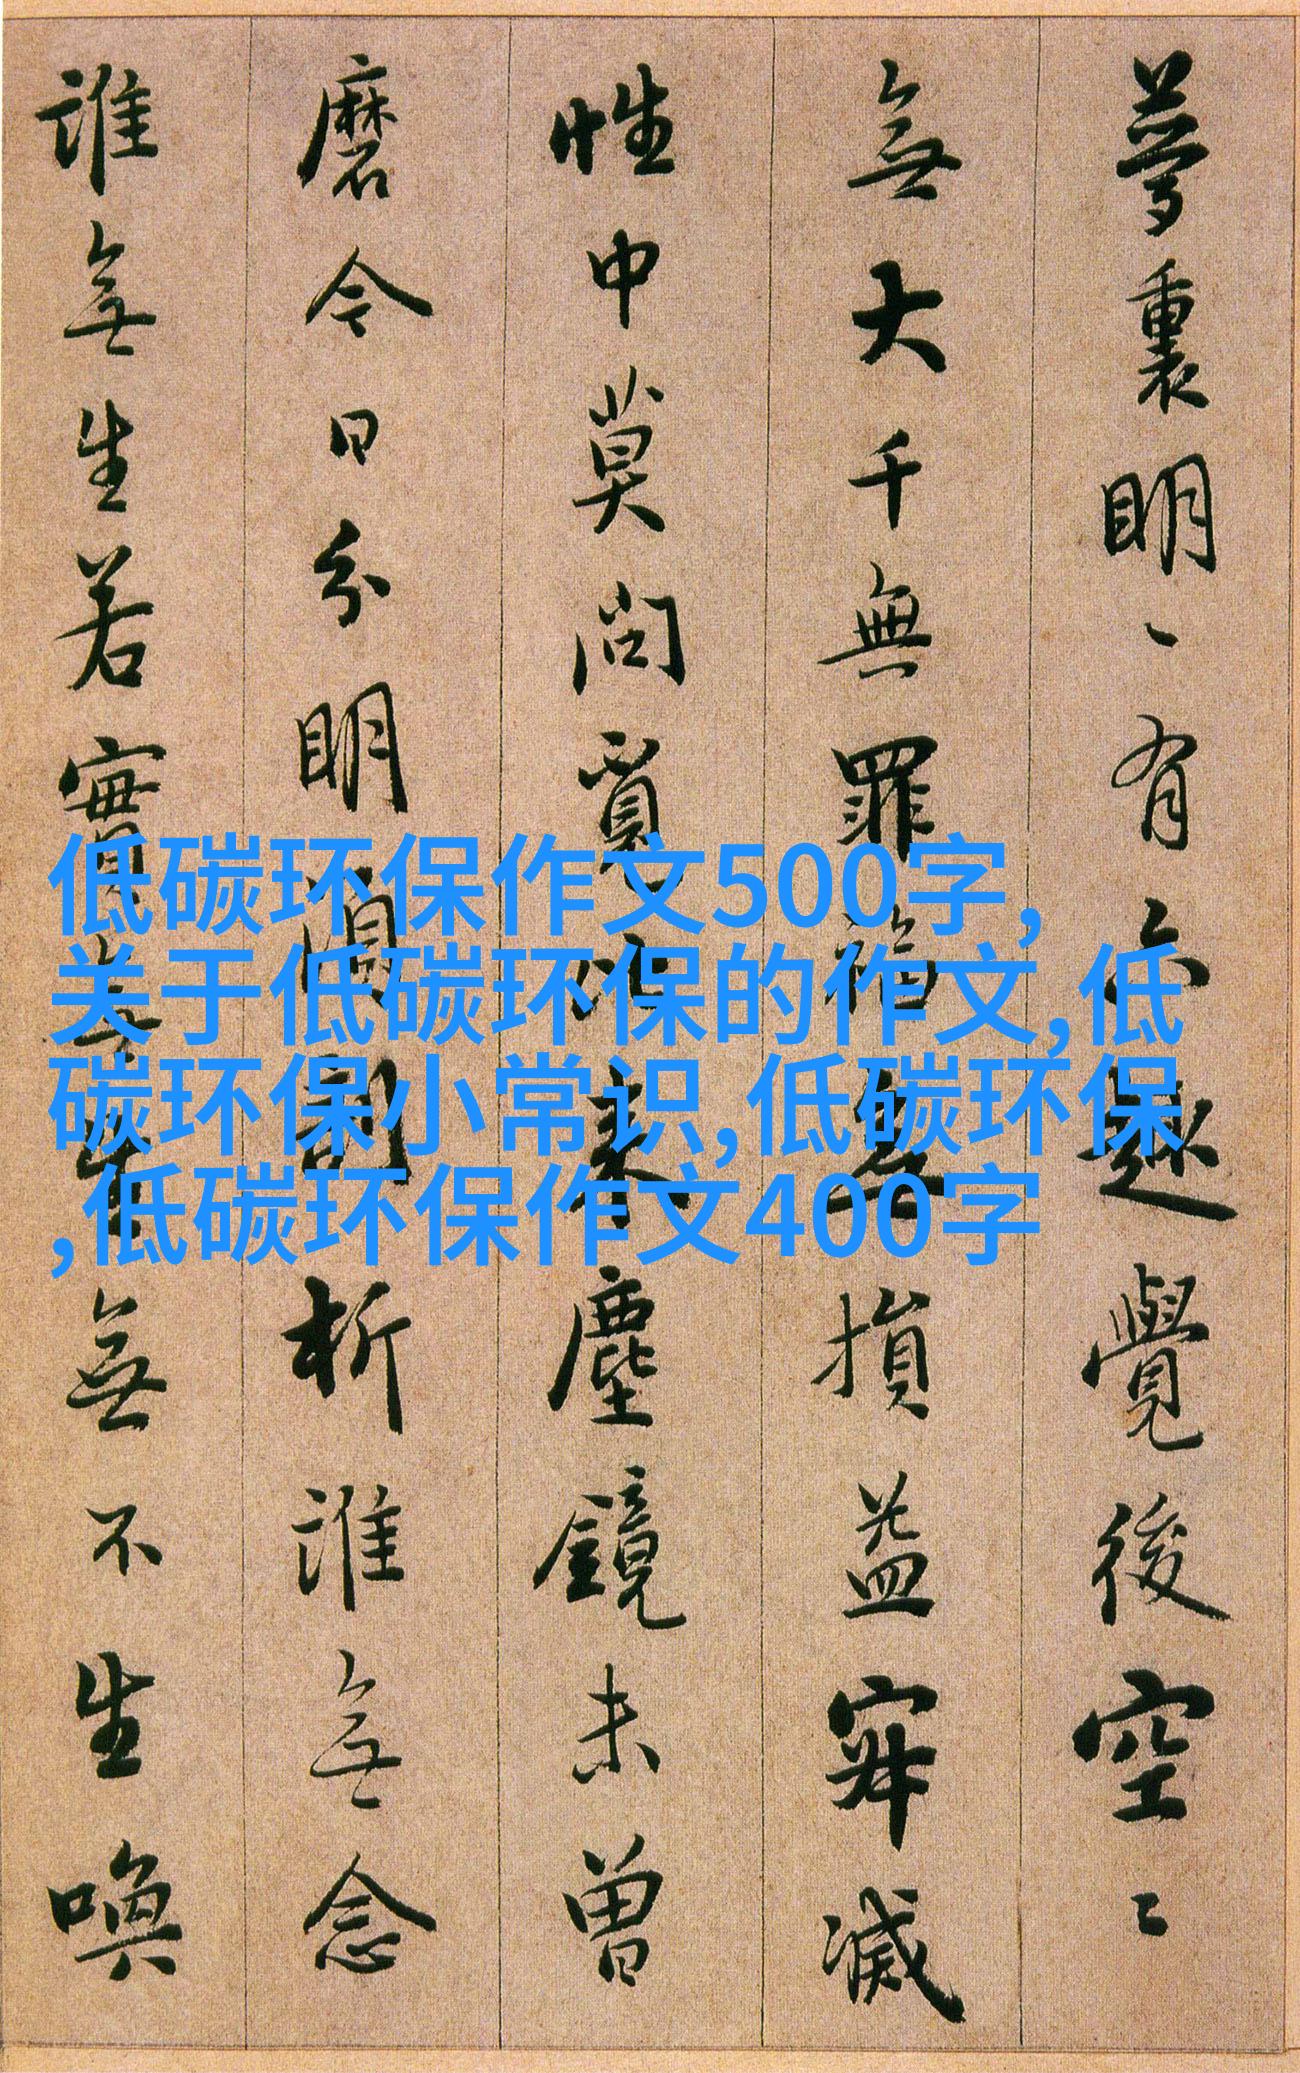 夢裏明〻有六趣覺後空〻
無大千無罪福無損益寂滅
性中莫問覓比來塵鏡未曾
磨今日分明須剖析誰無念
誰無生若實無生無不生喚
低碳环保作文500字,
关于低碳环保的作文,低
碳环保小常识,低碳环保
,低碳环保作文400字